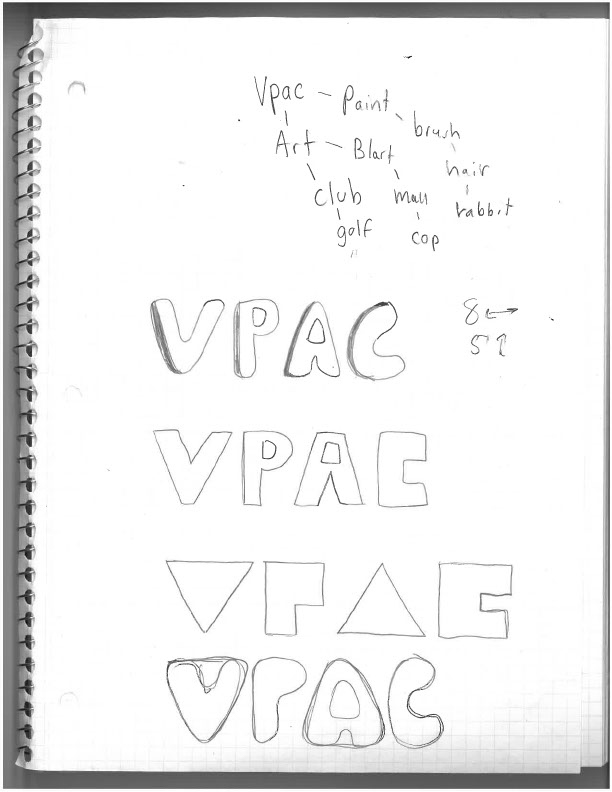 Vpac - Paint
brush
Art - Blart
hair
club mall rabbit
golf cop
VPAC
8 ↔
5 ↕
VPAC
VPAC
VPAC